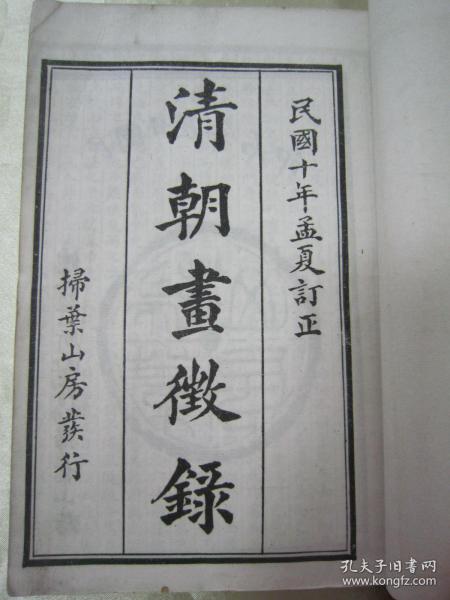 民國十年孟夏訂正
清朝畫徵錄
掃葉山房發行
孔夫子旧书网
www.kongfz.com